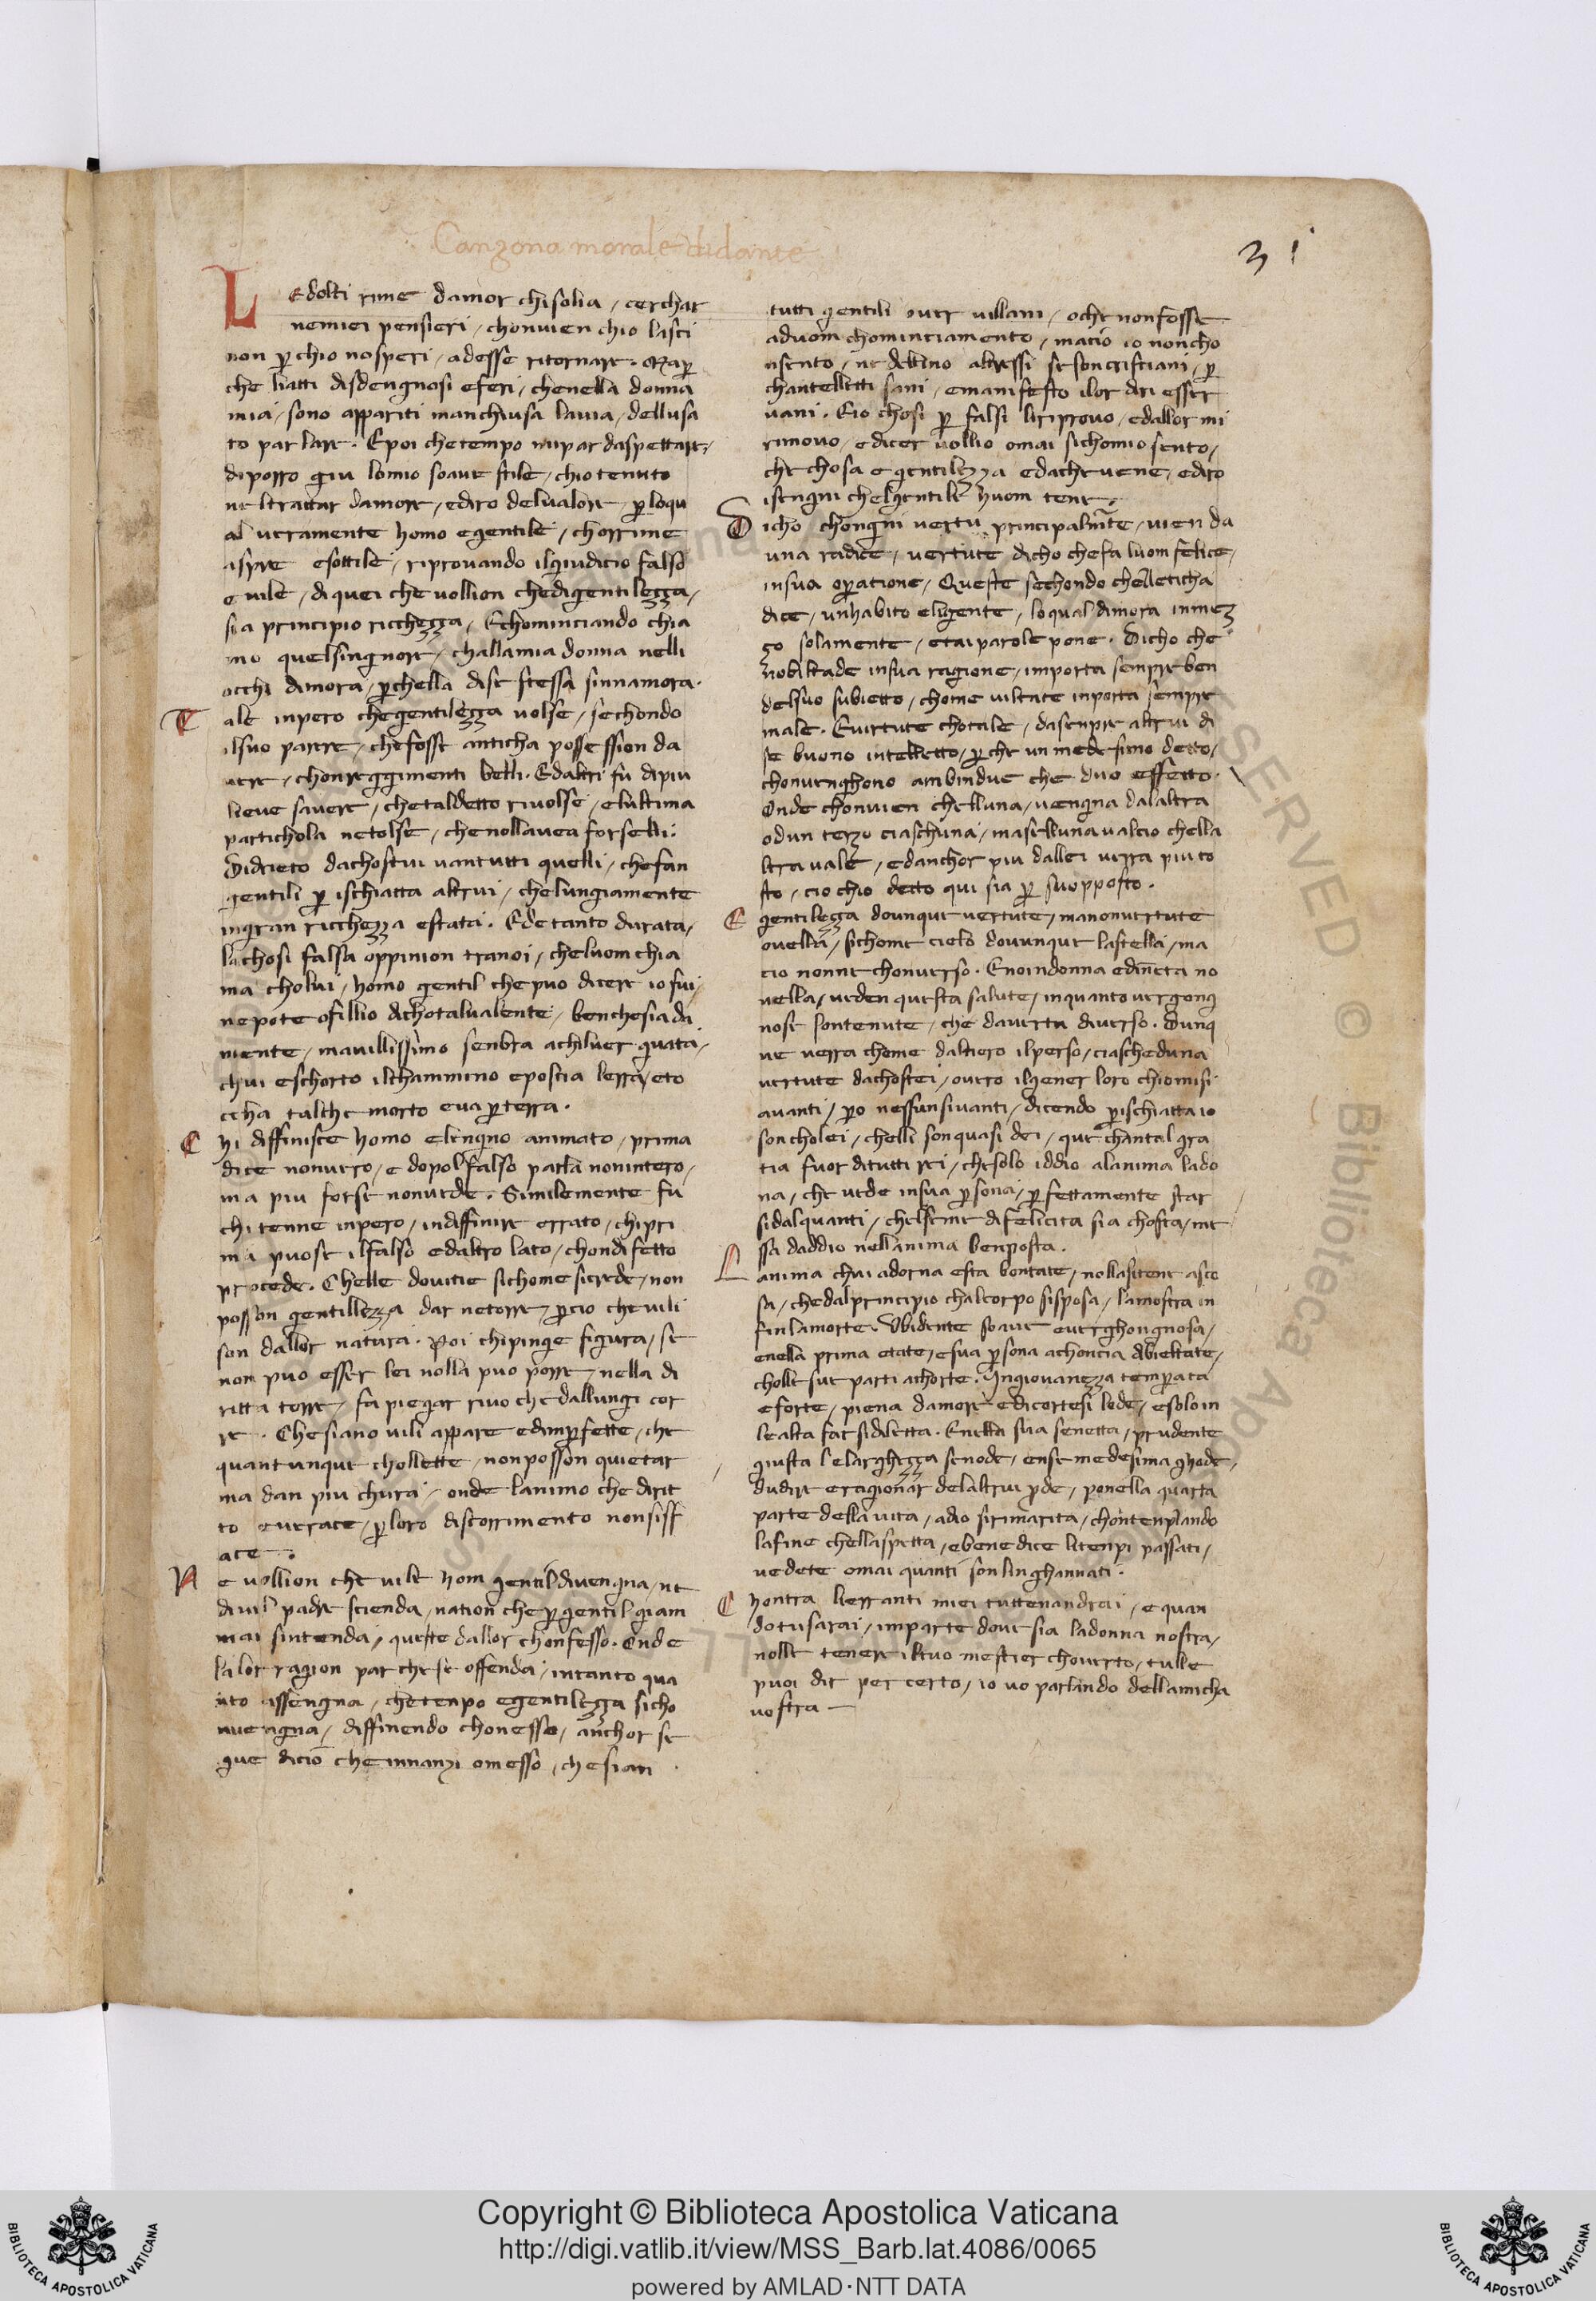 Canzona morale di dante
31
L
Edolti rime damor chisolia / cerchar
nemiei pensieri / chonvien chio lasci
non ꝑ chio nosperi / adesse ritornare. Maꝑ
che liatti disdengnosi eferi / chenella donna
mia / sono appariti manchiusa lauia / dellusa
to parlare. Epoi chetempo mipar daspettare /
diporro giu lomio soaue stile / chio tenuto
neltrattar damore / ediro deluалore / ꝑ loqu
al ueramente homo egentile / chorrime
aspre esottile / riprouando ilgiudicio falso
euile / di quei che uollion chedigentilezza /
sia principio ricchezza / Echominciando chia
mo quelsingnore / challamia donna nelli
occhi dimora / ꝑchella dise stessa sinnamora.
T ale inpero chegentilezza uolse / sechondo
ilsuo parere / chefosse anticha possession da
uere / chonreggimenti belli. Edaltri fu dipiu
lieue sauere / chetaldetto riuolse / elultima
partichola netolse / chenollauea forselli.
Didrieto dachostui uantutti quelli / chefan
gentili ꝑ ischiatta altrui / chelungiamente
ingran ricchezza estata. Ede tanto durata /
lachosi falsa oppinion tranoi / cheluom chia
ma cholui / homo gentil che puo dicere io fui /
nepote ofillio dichotalualente / benchesiada
niente / mauillissimo senbra achiluer guata /
chui eschorto ilchammino eposcia lerra / eto
ccha talche morto eua ꝑ terra.
C hi diffinisce homo elengno animato / prima
dice nonuero / e dopol falso parla nonintero /
ma piu forse nonuede. Similemente fu
chi tenne inpero / indiffinire errato / chipri
ma puose ilfalso edaltro lato / chondifetto
procede. Chelle diuitie sichome sicrede / non
posson gentillezza dar netorre / ꝑcio cheuili
son dallor natura. Poi chipinge figura / se
non puo esser lei nolla puo porre / nella di
ritta torre / fa piegar riuo chedallungi cor
re. Chesiano uili appare edimꝑfette / che
quantunque chollette / nonposson quietar
ma dan piu chura / onde lanimo che dirit
to euerace / ꝑ loro discorrimento nonsisf
ace.
N e uollion che uile hom gentil diuengna / ne
diuil padre scienda / nation che ꝑ gentil giam
mai sintenda / queste dallor chonfesso. Onde
la lor ragion par che se offenda / intanto qua
nto assengna / chetenpo egentilezza sicho
nuengna / diffinendo chonesso / anchor se
gue dicio che innanzi omesso / chesian
tutti gentili ouer uillani / oche nonfosse
aduom chominciamento / macio io noncho
nsento / ne dellino altressi sesoncristiani / ꝑ
chantelletti sani / emanifesto ilor diri esser
uani. Eio chosi ꝑ falsi liriprouo / edallor mi
rimouo / e dicer uollio omai sichomio sento /
che chosa e gentilezza edacheuene / ediro
isengni chelgentile huom tene.
D icho chongni uertu principalmēte / uien da
una radice / uertute dicho chefa luom felice /
insua oꝑatione / Queste sechondo chelleticha
dice / unhabito eligente / loqual dimora inmez
zo solamente / etaiparole pone. Dicho che
nobiltade insua ragione / importa sempre ben
delsuo subietto / chome uiltate inporta sempre
male. Euirtute chotale / dasenpre altrui di
se buono intelletto / ꝑ che un medesimo detto /
chonuenghono ambindue che duo effetto.
Onde chonuien chelluna / uengna dalaltra
odun terzo ciaschuna / maselluna ualcio chella
ltra uale / edanchor piu dallei uerra piuto
sto / cio chio detto qui sia ꝑ suopposto.
E gentilezza dounque uertute / manonuertute
ouella / sichome cielo douunque lastella / ma
cio nonne chonuerso. Enoindonna edincta no
uella / ueden questa salute / inquanto uergong
nose sontenute / che dauertu diuerso. Dunq
ue uerra chome dalnero ilperso / ciascheduna
uertute dachostei / ouero ilgener loro chiomisi
auanti / ꝑo nessunsiuanti / dicendo ꝑischiatta io
soncholei / chelli sonquasi dei / que chantal gra
tia fuor ditutti rei / chesolo iddio alanima lado
na / che uede insua ꝑsona / ꝑfettamente star
sidalquanti / chelseme difelicita sia chosta / me
ssa daddio nellanima benposta.
L anima chui adorna esta bontate / nollasitene asco
sa / chedalprincipio chalcorpo sisposa / lamostra in
finlamorte. Vbidente soaue euerghongnosa /
enella prima etate / esua ꝑsona achoncia dibieltate /
cholle sue parti achorte. Ingiouanezza temꝑata
eforte / piena damore edicortesi lode / esoloin
lealta far sidiletta. Enella sua senetta / prudente
giusta lelarghezza senode / ense medesima ghode /
dudire eragionar delaltrui ꝑde / ponella quarta
parte della uita / adio sirimarita / chontenplando
lafine chellaspetta / ebenedice litenpi passati /
uedete omai quanti sonlinghannati.
C hontra lierranti miei tuttenandrai / e quan
dotusarai / imparte doue sia ladonna nostra /
nolle tenere iltuo mestier chouerto / tulle
puoi dir per certo / io uo parlando dellamicha
uostra —
RESERVED © Biblioteca Apostolica
Copyright © Biblioteca Apostolica Vaticana
http://digi.vatlib.it/view/MSS_Barb.lat.4086/0065
powered by AMLAD·NTT DATA
BIBLIOTECA APOSTOLICA VATICANA
BIBLIOTECA APOSTOLICA VATICANA